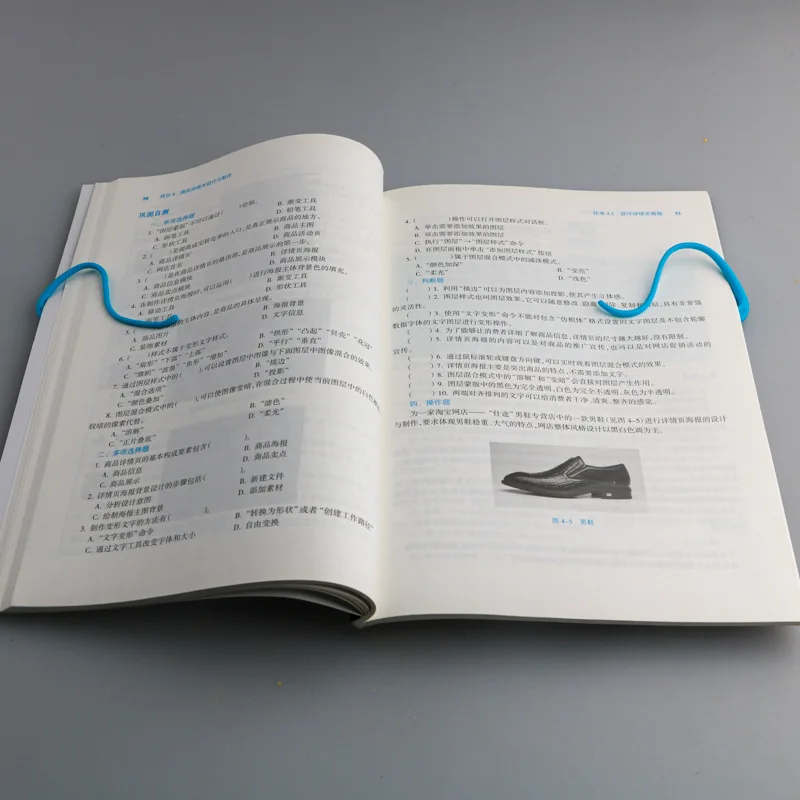 巩固自测
一、单项选择题
1. “图层蒙版”不可以通过( )绘制。
A. 画笔工具 B. 渐变工具
C. 形状工具 D. 铅笔工具
2. ( )是提高成交转化率的入口,是真正展示商品的地方。
A. 商品详情页 B. 商品主图
C. 网店首页 D. 商品活动页
3. ( )是在商品详情页的最顶部,是商品展示的第一步。
A. 商品信息模块 B. 详情页海报
C. 商品卖点模块 D. 商品展示模块
4. 在制作详情页海报时,可以运用( )进行海报主体背景色的填充。
A. 移动工具 B. 渐变工具
C. 画笔工具 D. 形状工具
5. ( )的主体内容,是商品的具体呈现。
A. 商品图片 B. 海报背景
C. 装饰素材 D. 文字信息
6. ( )样式不属于变形文字样式。
A. “扇形”“下弧”“上弧” B. “拱形”“凸起”“贝壳”“花冠”
C. “旗帜”“波浪”“鱼形”“增加” D. “平行”“垂直”
7. 通过图层样式中的( )可以设置图层中图像与下面图层中图像混合的效果。
A. “混合选项” B. “描边”
C. “颜色叠加” D. “投影”
8. 图层混合模式中的( )可以使图像变暗,在混合过程中使当前图层中的白色被
较暗的像素代替。
A. “溶解” B. “滤色”
C. “正片叠底” D. “柔光”
二、多项选择题
1. 商品详情页的基本构成要素包含( )。
A. 商品信息 B. 商品海报
C. 商品展示 D. 商品卖点
2. 详情页海报背景设计的步骤包括( )。
A. 分析设计意图 B. 新建文件
C. 绘制海报主图背景 D. 添加素材
3. 制作变形文字的方法有( )。
A. “文字变形”命令 B. “转换为形状”或者“创建工作路径”
C. 通过文字工具改变字体和大小 D. 自由变换
4. ( )操作可以打开图层样式对话框。
A. 单击需要添加效果的图层
B. 双击需要添加效果的图层
C. 执行“图层”→“图层样式”命令
D. 在图层面板中单击“添加图层样式”按钮
5. ( )属于图层混合模式中的减淡模式。
A. “颜色加深” B. “变亮”
C. “柔光” D. “浅色”
三、判断题
( )1. 利用“描边”可以为图层内容添加投影,使其产生立体感。
( )2. 图层样式也叫图层效果,它可以随意修改、隐藏 复制 粘贴,具有非常强
的灵活性。
( )3. 使用“文字变形”命令不能对包含“仿粗体”格式设置的文字图层及不包含轮廓
数据字体的文字图层进行变形操作。
( )4. 为了能够让消费者详细了解商品信息,详情页的尺寸越大越好,没有限制。
( )5. 详情页海报的内容可以是对商品的推广宣传,也可以是对网店促销活动的
宣传。
( )6. 通过鼠标滚轮或键盘方向键,可以实时观看图层混合模式的效果。
( )7. 详情页海报主要是突出商品的特点,不需要添加文字。
( )8. 图层混合模式中的“溶解”和“变暗”会直接对图层产生作用。
( )9. 图层蒙版中的黑色为完全不透明,白色为完全不透明,灰色为半透明。
( )10. 两端对齐排列的文字可以给消费者干净、清爽、整齐的感觉。
四、操作题
为一家淘宝网店——“仕途”男鞋专营店中的一款男鞋(见图4-5)进行详情页海报的设计
与制作,要求体现男鞋稳重、大气的特点,网店整体风格设计以黑白色调为主。
图4-5 男鞋